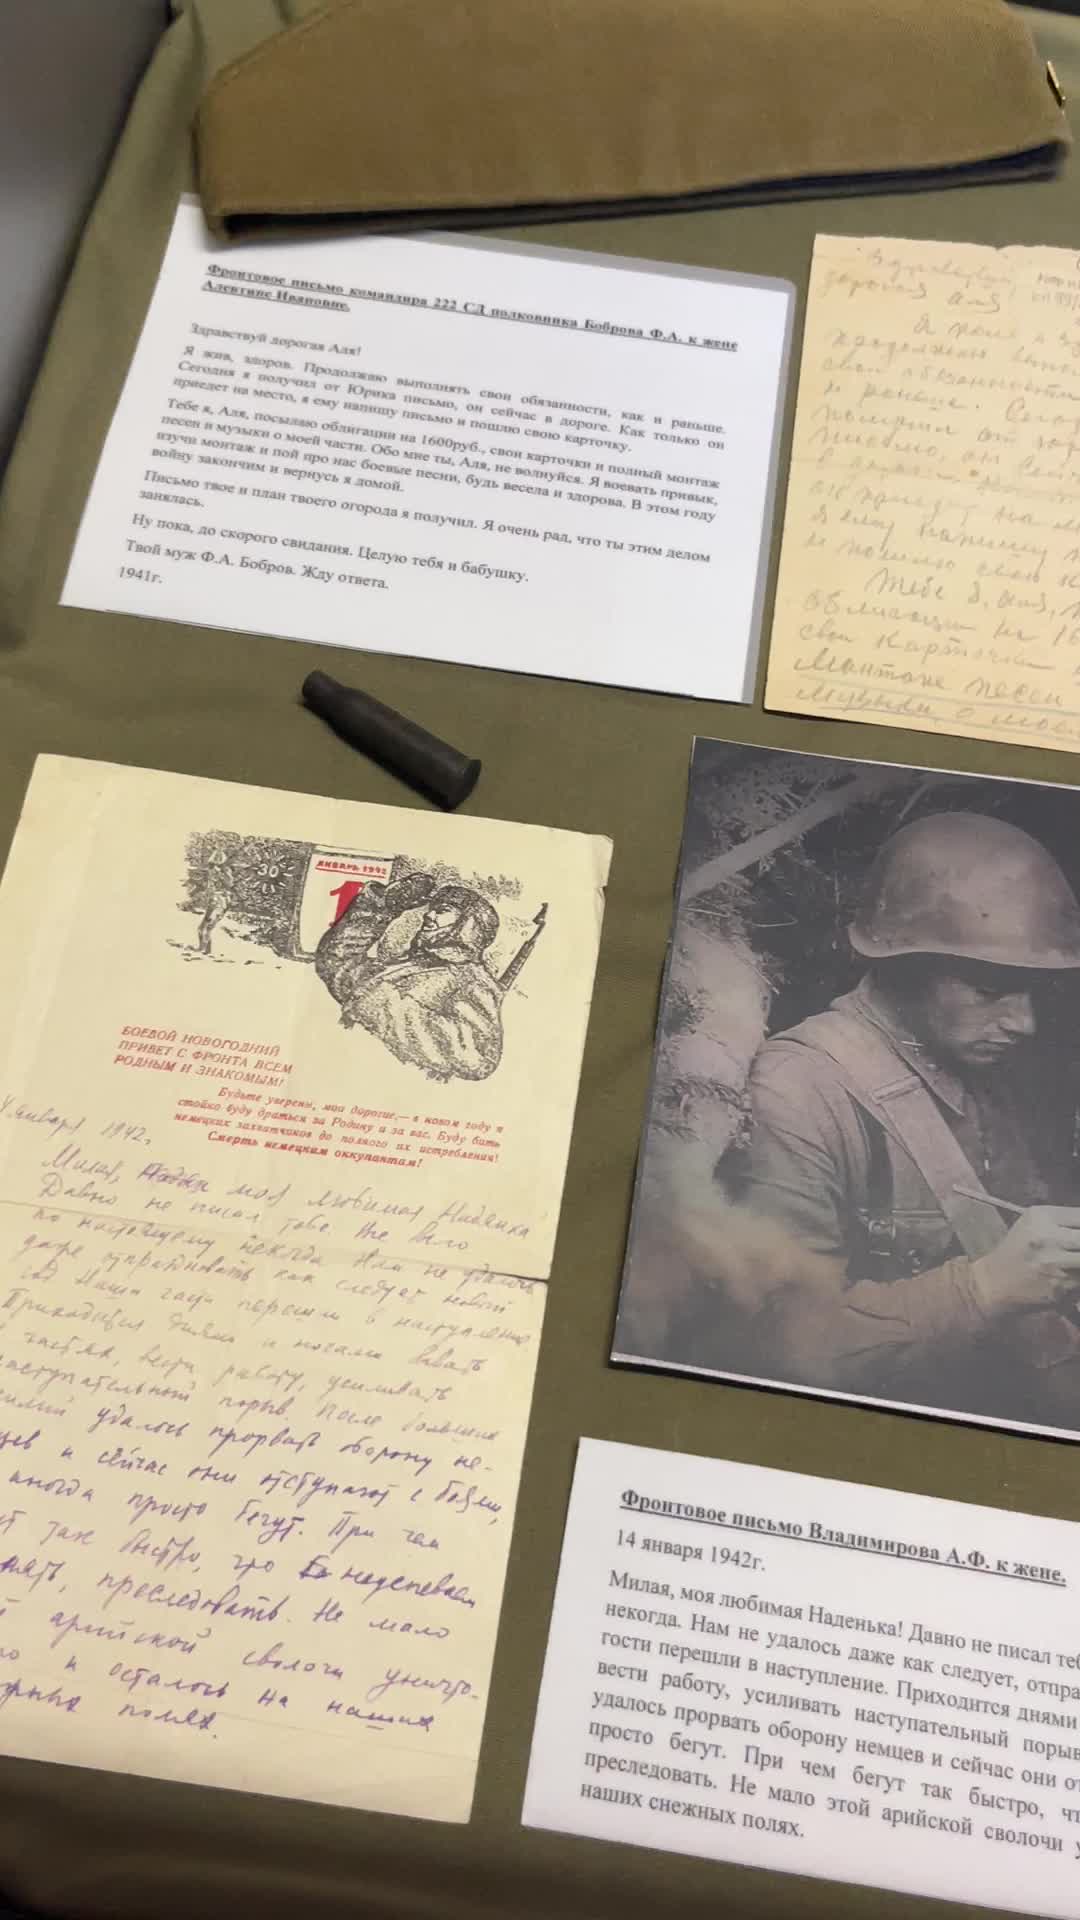 Фронтовое письмо командира 222 СД полковника Боброва Ф.А. к жене
Алевтине Ивановне.
Здравствуй дорогая Аля!
Я жив, здоров. Продолжаю выполнять свои обязанности, как и раньше.
Сегодня я получил от Юрика письмо, он сейчас в дороге. Как только он
приедет на место, я ему напишу письмо и пошлю свою карточку.
Тебе я, Аля, посылаю облигации на 1600руб., свои карточки и полный монтаж
песен и музыки о моей части. Обо мне ты, Аля, не волнуйся. Я воевать привык,
изучи монтаж и пой про нас боевые песни, будь весела и здорова. В этом году
войну закончим и вернусь я домой.
Письмо твое и план твоего огорода я получил. Я очень рад, что ты этим делом
занялась.
Ну пока, до скорого свидания. Целую тебя и бабушку.
Твой муж Ф.А. Бобров. Жду ответа.
1941г.
дорогая Аля
Я
свои обязанности
и раньше. Сего
получил от Юр
письмо, он сейч
я ему напишу
и пошлю свою к
Тебе я, Аля,
облигации на 16
свои карточки
Монтаж песен
музыки о мое
30
ЯНВАРЬ 1942
1
БОЕВОЙ НОВОГОДНИЙ
ПРИВЕТ С ФРОНТА ВСЕМ
РОДНЫМ И ЗНАКОМЫМ!
Будьте уверены, мои дорогие,— в новом году я
стойко буду драться за Родину и за вас. Буду бить
немецких захватчиков до полного их истребления!
Смерть немецким оккупантам!
января 1942,
Милая, моя любимая Наденька!
Давно не писал тебе. Не было
по настоящему некогда Нам не удалось
даже отпраздновать как следует новый
год Наши части перешли в наступление.
Приходится днями и ночами
частях, вести работу, усиливать
наступательный порыв. После больших
усилий удалось прорвать оборону не-
мцев и сейчас они отступают с боями,
иногда просто бегут. При чем
так быстро, что неуспеваем
преследовать. Не мало
арийской сволочи уничто-
и осталось на наших
полях.
Фронтовое письмо Владимирова А.Ф. к жене.
14 января 1942г.
Милая, моя любимая Наденька! Давно не писал теб
некогда. Нам не удалось даже как следует, отпра
гости перешли в наступление. Приходится днями
вести работу, усиливать наступательный порыв
удалось прорвать оборону немцев и сейчас они от
просто бегут. При чем бегут так быстро, чт
преследовать. Не мало этой арийской сволочи у
наших снежных полях.